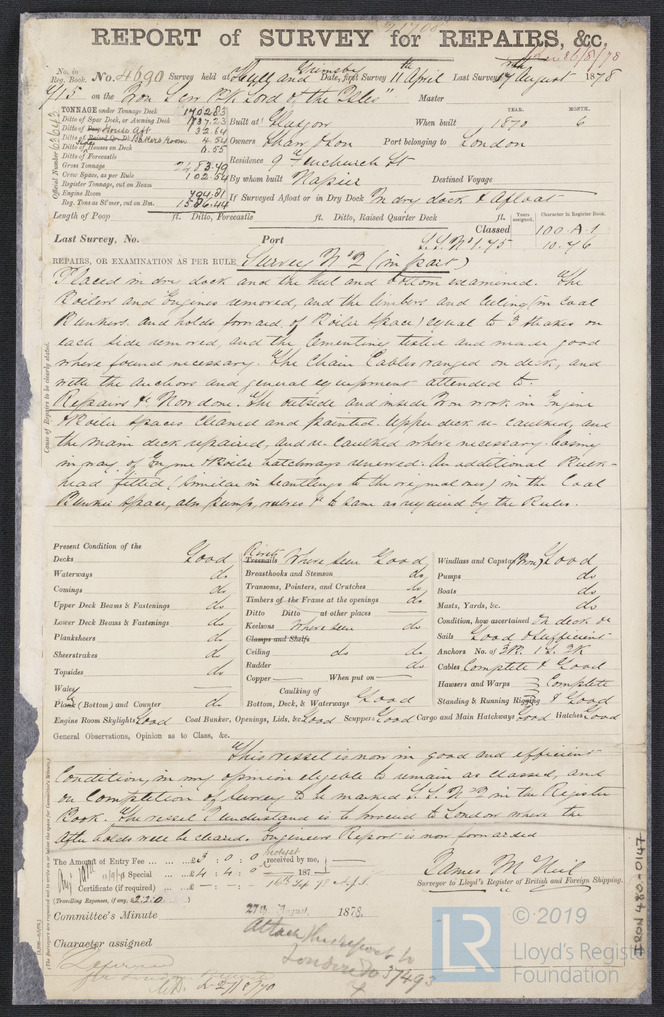 REPORT of SURVEY for REPAIRS, &c.
No. in Reg. Book.
No. 4090 Survey held at Hull and Grimsby Date, first Survey 11th April Last Survey 17 August 1878
on the Iron Screw "Lord of the Isles" Master
TONNAGE under Tonnage Deck 1702.83
Ditto of Spar Deck, or Awning Deck 737.23
Ditto of House Aft 32.64
Ditto of 4.54
Ditto of Houses on Deck
Ditto of Forecastle
Gross Tonnage 2483.49
Crew Space, as per Rule 102.54
Register Tonnage, cut on Beam
Engine Room 794.81
Reg. Ton. as St'mer, cut on Bm. 1586.44
Official Number
Built at Glasgow When built YEAR. 1870 MONTH. 6
Owners Shaw & Son Port belonging to London
Residence 9 Fenchurch St
By whom built Napier Destined Voyage
If Surveyed Afloat or in Dry Dock In dry dock & Afloat
Length of Poop ft. Ditto, Forecastle ft. Ditto, Raised Quarter Deck ft.
Years assigned. Character in Register Book.
Classed 100 A.1
Last Survey, No. Port S.S. No 1.75 10.76
REPAIRS, OR EXAMINATION AS PER RULE Survey No 2 (in part)
Placed in dry dock and the keel and bottom examined. The
Boilers and Engines removed, and the limbers and ceiling (in Coal
Bunkers and holds forward, of Boiler Space) equal to 3 strakes on
each side removed, and the cementing tested and made good
where found necessary. The Chain Cables ranged on deck, and
with the anchors and general equipment attended to.
Repairs &c Now done. The outside and inside Iron work in Engine
& Boiler spaces cleaned and painted. Upper deck re-caulked, and
the main deck repaired, and re-caulked where necessary. Casing
in way of Engine & Boiler hatchways renewed. An additional Bulk-
head fitted (similar in scantlings to the original ones) in the Coal
Bunker Space, also pumps, to same as required by the Rules.
Cause of Repairs to be clearly stated.
Present Condition of the
Decks Good
Waterways do
Comings do
Upper Deck Beams & Fastenings do
Lower Deck Beams & Fastenings do
Planksheers do
Sheerstrakes do
Topsides do
Wales
(Bottom) and Counter do
Rivets Treenails Where seen Good
Breasthooks and Stemson do
Transoms, Pointers, and Crutches do
Timbers of the Frame at the openings do
Ditto Ditto at other places
Keelsons Where seen do
Clamps and Shelfs
Ceiling do do
Rudder do
Copper When put on
Caulking of
Bottom, Deck, & Waterways Good
Windlass and Capstan Good
Pumps do
Boats do
Masts, Yards, &c. do
Condition, how ascertained
Sails Good & sufficient
Anchors No. of 3B. 1S. 2K
Cables Complete & Good
Hawsers and Warps Complete
Standing & Running Rigging & Good
Engine Room Skylights Good Coal Bunker, Openings, Lids, &c. Good Scuppers Good Cargo and Main Hatchways Good Hatches Good
General Observations, Opinion as to Class, &c.
This vessel is now in good and efficient
Condition, in my opinion eligible to remain as classed, and
on Completion of Survey to be marked S.S. No 2 in the Register
Book. The vessel I understand is to proceed to London where the
after holds will be cleared. Engineers Report is now forwarded
The Amount of Entry Fee £3 : 0 : 0 received by me,
Special £4 : 4 : 0 187
Certificate (if required) £ - : - : -
(Travelling Expenses, if any, £2.2.0
James McNeil
Surveyor to Lloyd's Register of British and Foreign Shipping.
Committee's Minute 27th August, 1878.
Character assigned
Deferred
Attach this report to
London No 37493
IRON 480-0147
LR
© 2019
Lloyd's Register
Foundation